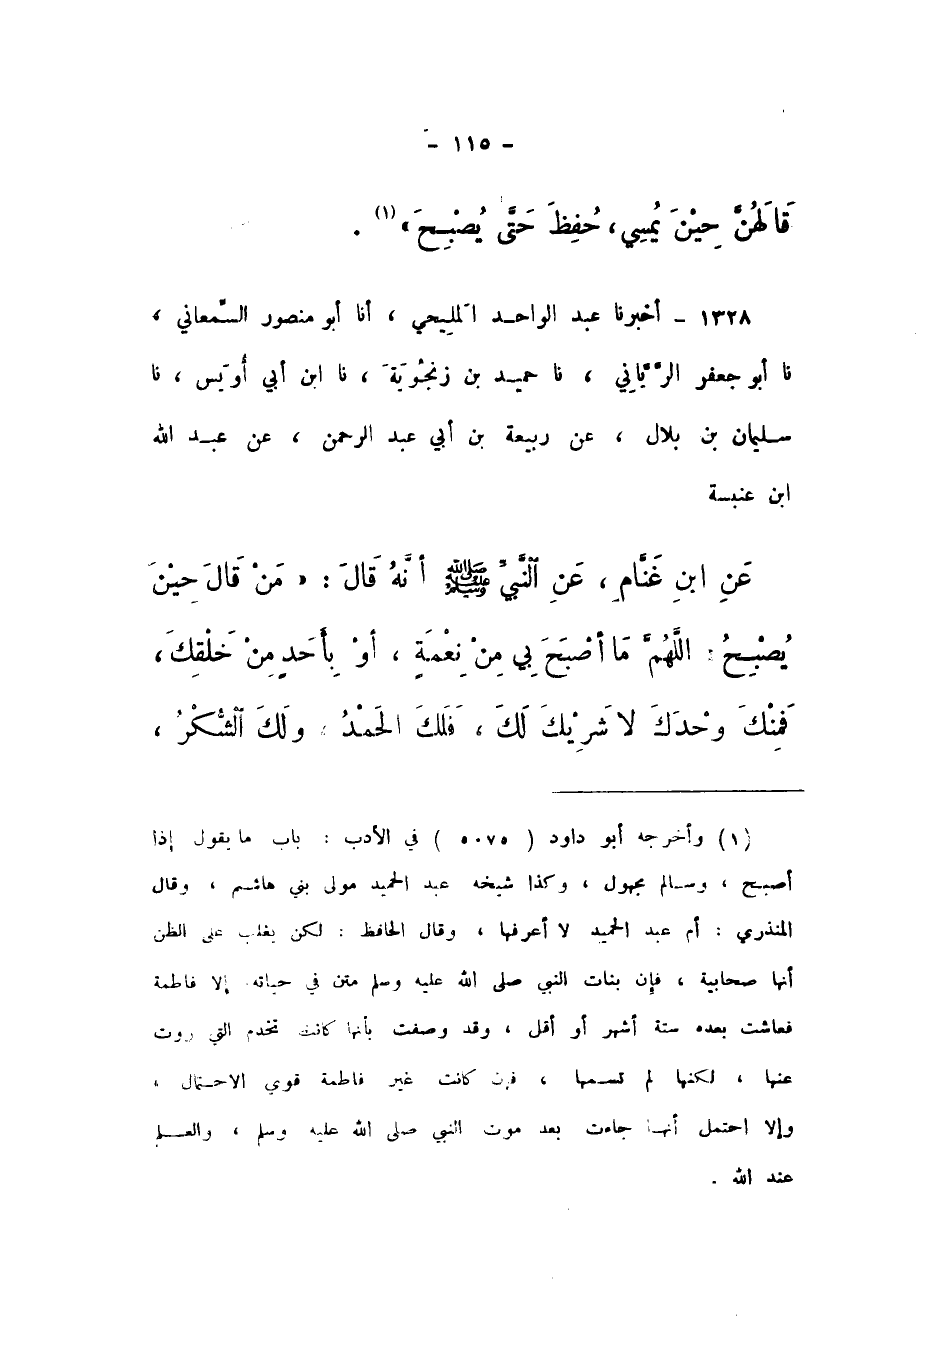 - ١١٥ -
قَالَهُنَّ حِيْنَ يُمْسِي، حُفِظَ حَتَّى يُصْبِحَ» (١) .
١٣٢٨ - أخبرنا عبد الواحد المليحي ، أنا أبو منصور السَّمعاني ،
نا أبو جعفر الرَّيَّاني ، نا حميد بن زنجُويَةَ ، نا ابن أبي أُويس ، نا
سليمان بن بلال ، عن ربيعة بن أبي عبد الرحمن ، عن عبد الله
ابن عنبسة
عَنِ ابنِ غَنَّامٍ ، عَنِ النَّبِيِّ ﷺ أَنَّهُ قَالَ : « مَنْ قَالَ حِيْنَ
يُصْبِحُ : اللَّهُمَّ مَا أَصْبَحَ بِي مِنْ نِعْمَةٍ ، أَوْ بِأَحَدٍ مِنْ خَلْقِكَ ،
فَمِنْكَ وَحْدَكَ لا شَرِيْكَ لَكَ ، فَلَكَ الحَمْدُ ، وَلَكَ الشُّكْرُ ،
(١) وأخرجه أبو داود ( ٥٠٧٥ ) في الأدب : باب ما يقول إذا
أصبح ، وسالم مجهول ، وكذا شيخه عبد الحميد مولى بني هاشم ، وقال
المنذري : أم عبد الحميد لا أعرفها ، وقال الحافظ : لكن يغلب على الظن
أنها صحابية ، فإن بنات النبي صلى الله عليه وسلم متن في حياته إلا فاطمة
فعاشت بعده ستة أشهر أو أقل ، وقد وصفت بأنها كانت تخدم التي روت
عنها ، لكنها لم تسمها ، فإن كانت غير فاطمة قوي الاحتمال ،
وإلا احتمل أنها جاءت بعد موت النبي صلى الله عليه وسلم ، والعلم
عند الله .